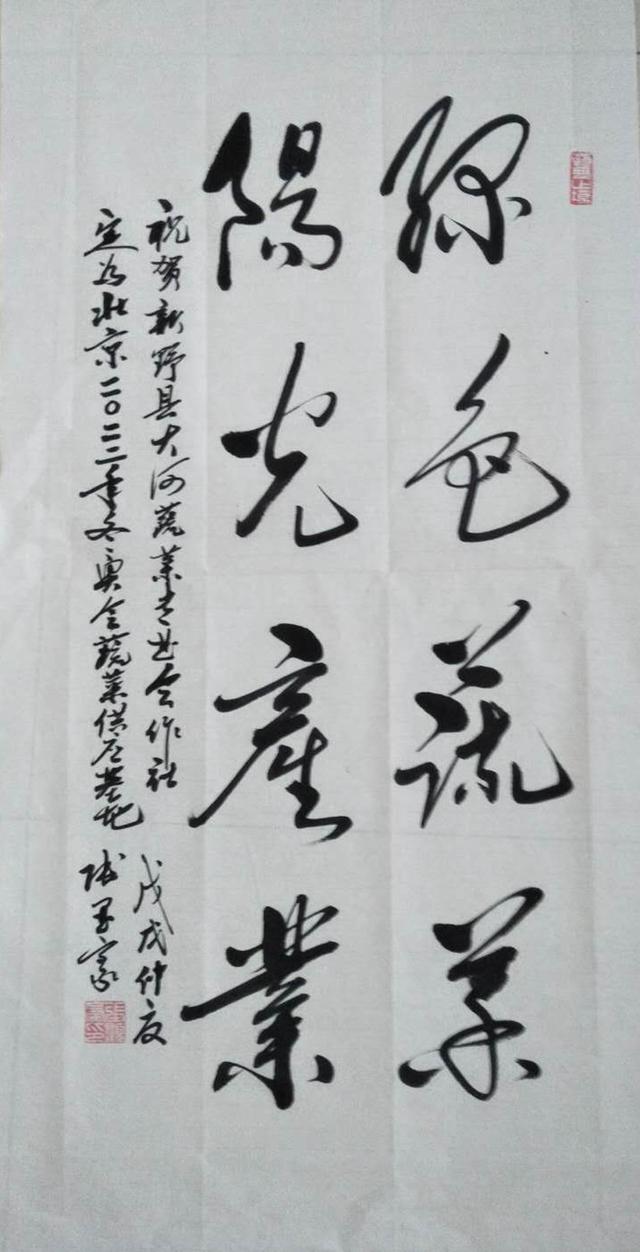 绿色蔬菜
陽光產業
祝贺新野县大河蔬菜专业合作社
定为北京二〇二二年冬奥会蔬菜供应基地
戊戌仲夏